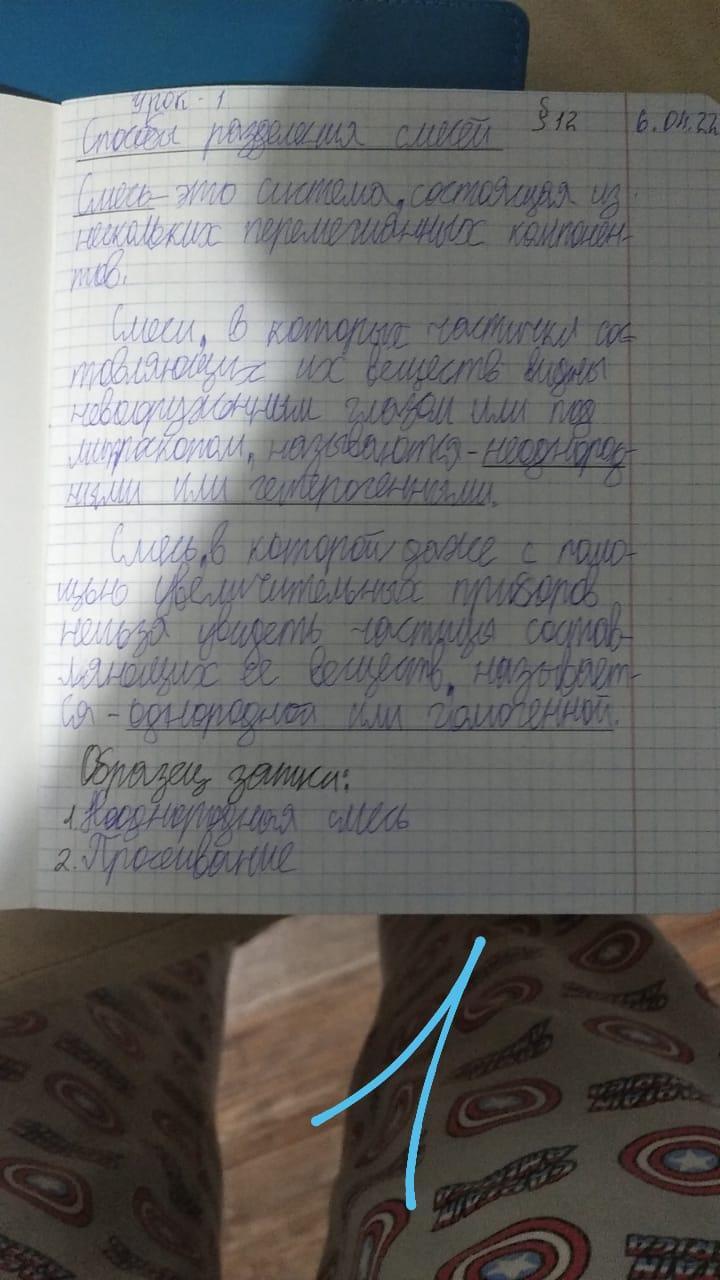 урок - 1
Способы разделения смесей § 12 6.04.22
Смесь - это система, состоящая из
нескольких перемешанных компонен-
тов.
Смеси, в которых частички сос-
тавляющих их веществ видны
невооружонным глазом или под
микроскопом, называются - неоднород-
ными или гетерогенными.
Смесь, в которой даже с помо-
щью увеличительных приборов
нельзя увидеть частицы состав-
ляющих ее веществ, называет-
ся - однородной или гомогенной.
Образец записи:
1. Неоднородная смесь
2. Просеивание
1